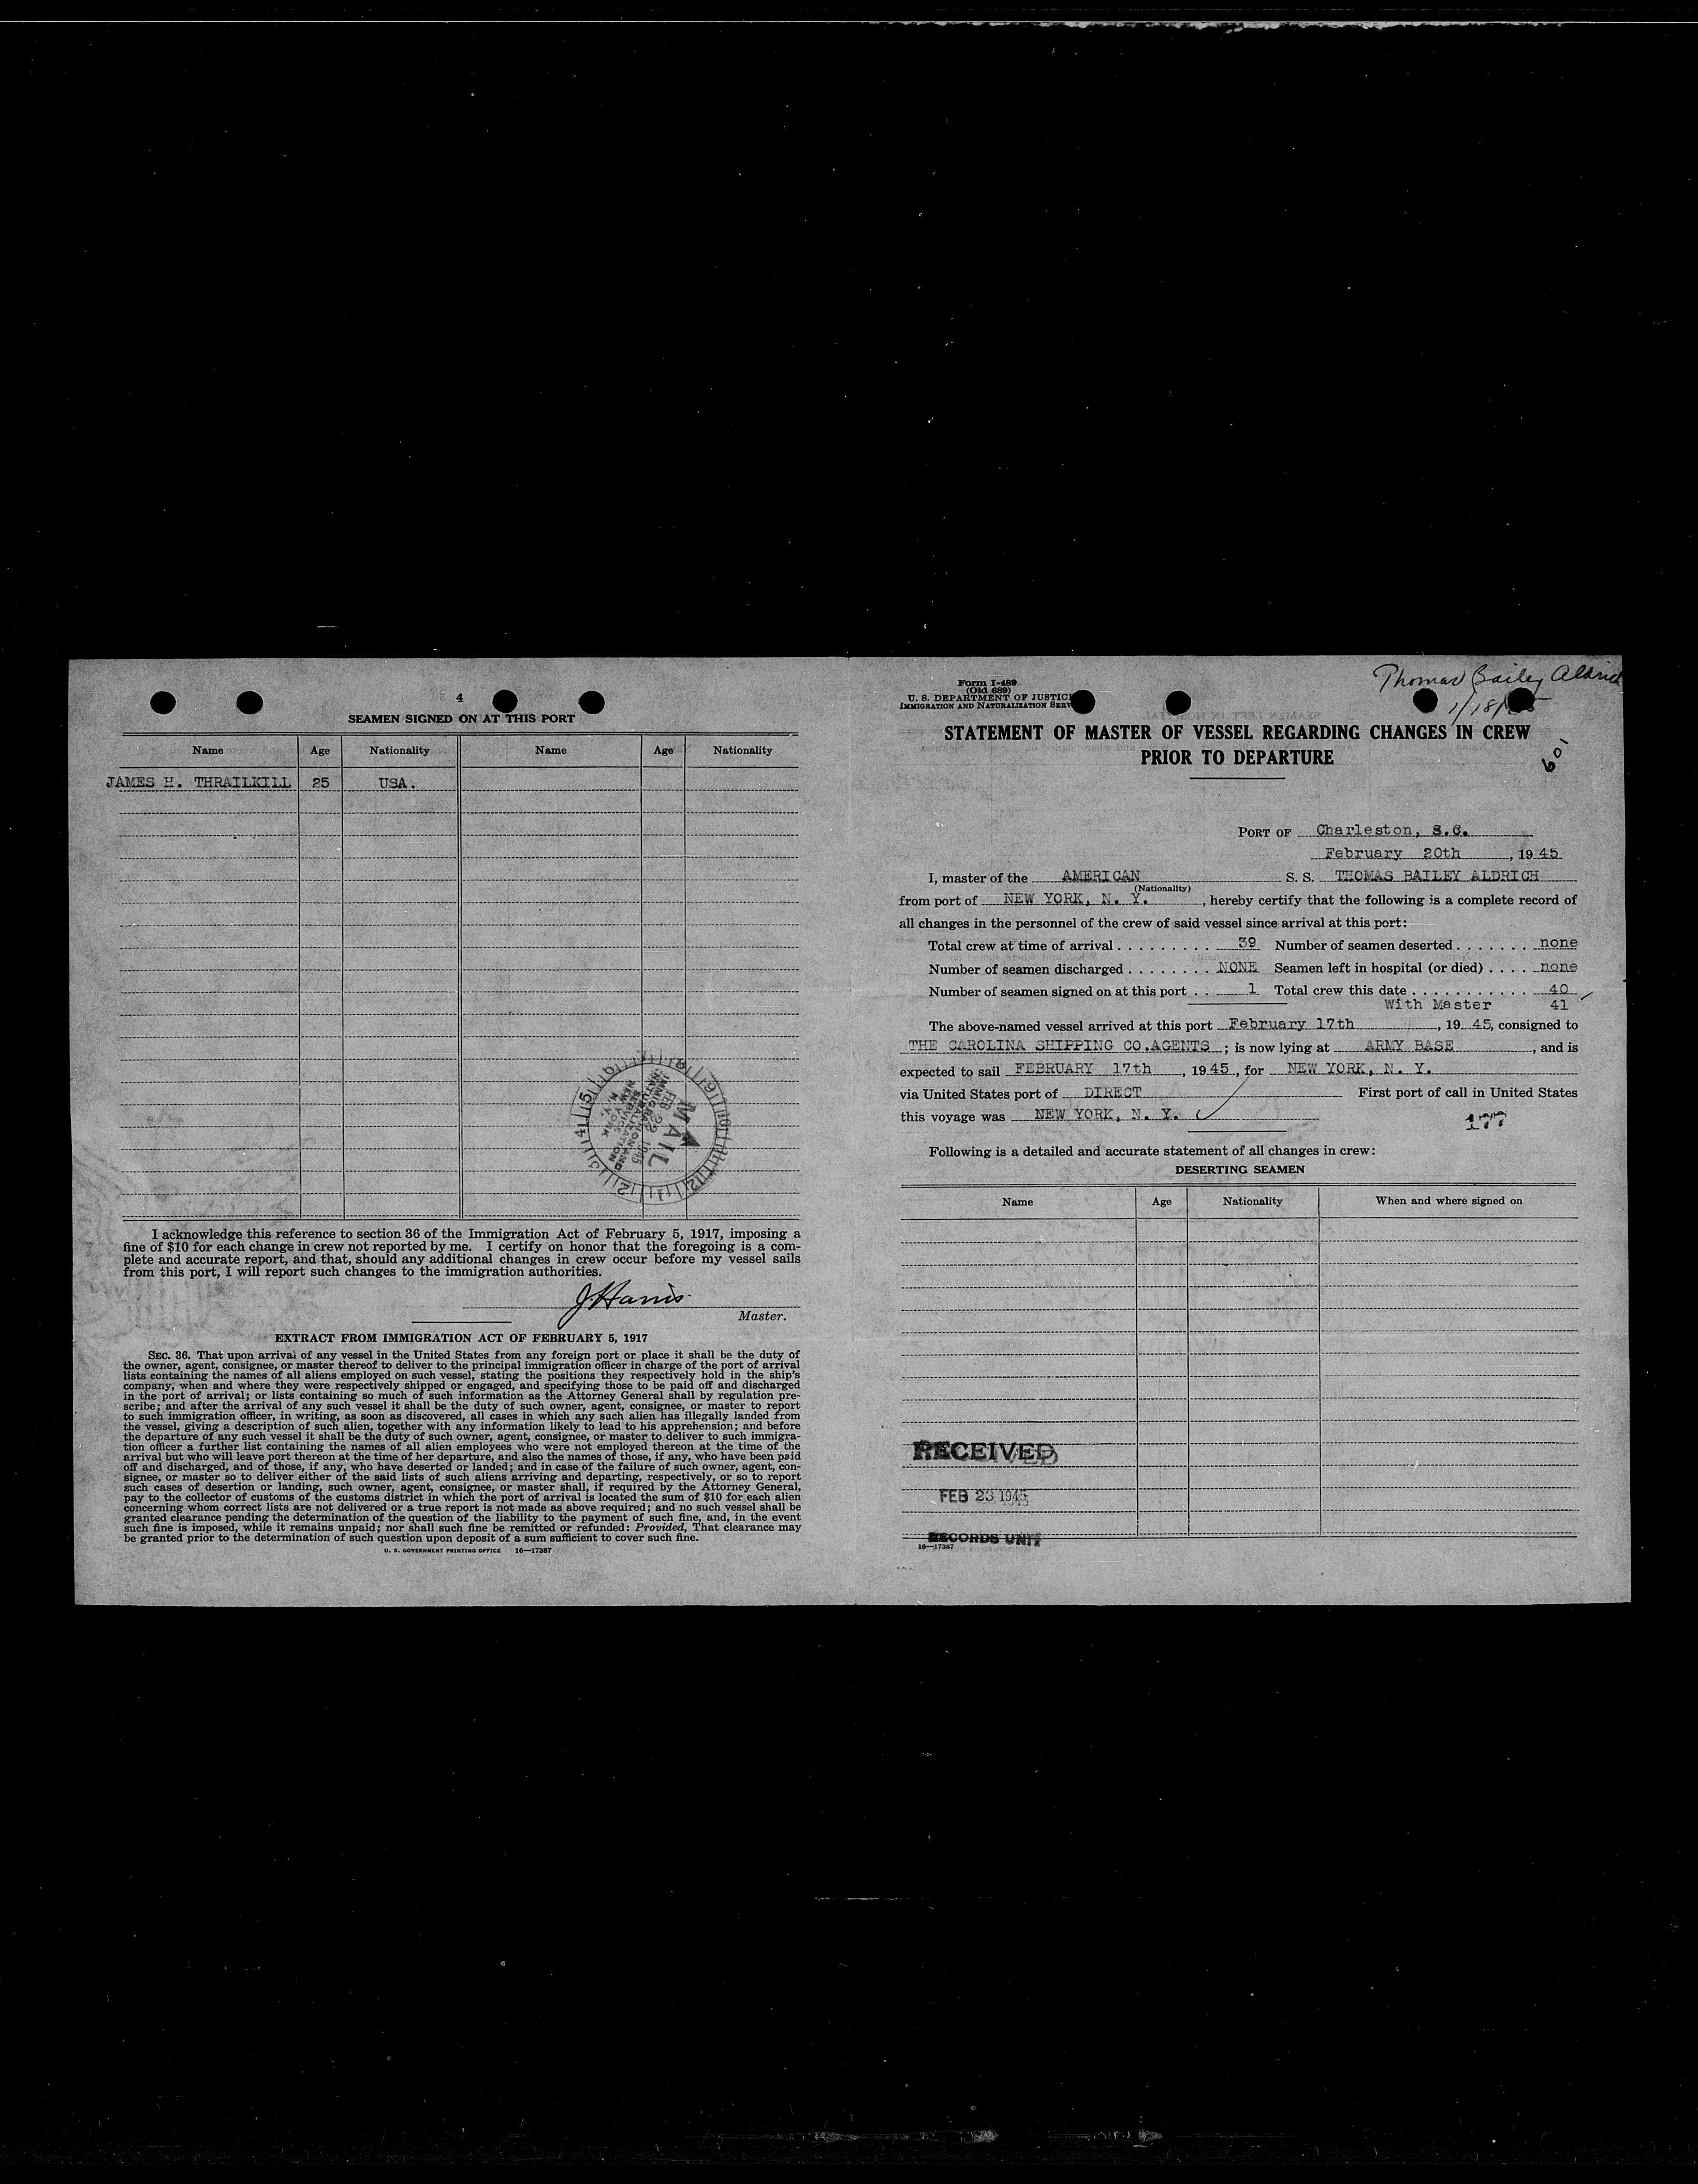 4
SEAMEN SIGNED ON AT THIS PORT
Name Age Nationality Name Age Nationality
JAMES H. THRAILKILL 25 USA.
MAIL
FEB 22 1945
IMMIGRATION AND
NATURALIZATION
SERVICE
NEW YORK
N. Y.
I acknowledge this reference to section 36 of the Immigration Act of February 5, 1917, imposing a
fine of $10 for each change in crew not reported by me. I certify on honor that the foregoing is a com-
plete and accurate report, and that, should any additional changes in crew occur before my vessel sails
from this port, I will report such changes to the immigration authorities.
J Harris
Master.
EXTRACT FROM IMMIGRATION ACT OF FEBRUARY 5, 1917
SEC. 36. That upon arrival of any vessel in the United States from any foreign port or place it shall be the duty of
the owner, agent, consignee, or master thereof to deliver to the principal immigration officer in charge of the port of arrival
lists containing the names of all aliens employed on such vessel, stating the positions they respectively hold in the ship's
company, when and where they were respectively shipped or engaged, and specifying those to be paid off and discharged
in the port of arrival; or lists containing so much of such information as the Attorney General shall by regulation pre-
scribe; and after the arrival of any such vessel it shall be the duty of such owner, agent, consignee, or master to report
to such immigration officer, in writing, as soon as discovered, all cases in which any such alien has illegally landed from
the vessel, giving a description of such alien, together with any information likely to lead to his apprehension; and before
the departure of any such vessel it shall be the duty of such owner, agent, consignee, or master to deliver to such immigra-
tion officer a further list containing the names of all alien employees who were not employed thereon at the time of the
arrival but who will leave port thereon at the time of her departure, and also the names of those, if any, who have been paid
off and discharged, and of those, if any, who have deserted or landed; and in case of the failure of such owner, agent, con-
signee, or master so to deliver either of the said lists of such aliens arriving and departing, respectively, or so to report
such cases of desertion or landing, such owner, agent, consignee, or master shall, if required by the Attorney General,
pay to the collector of customs of the customs district in which the port of arrival is located the sum of $10 for each alien
concerning whom correct lists are not delivered or a true report is not made as above required; and no such vessel shall be
granted clearance pending the determination of the question of the liability to the payment of such fine, and, in the event
such fine is imposed, while it remains unpaid; nor shall such fine be remitted or refunded: Provided, That clearance may
be granted prior to the determination of such question upon deposit of a sum sufficient to cover such fine.
U. S. GOVERNMENT PRINTING OFFICE 16—17387
Form I-489
(Old 689)
U. S. DEPARTMENT OF JUSTICE
IMMIGRATION AND NATURALIZATION SERV
Thomas Bailey Aldrich
1/18/
601
STATEMENT OF MASTER OF VESSEL REGARDING CHANGES IN CREW
PRIOR TO DEPARTURE
PORT OF Charleston, S.C.
February 20th, 1945
I, master of the AMERICAN S. S. THOMAS BAILEY ALDRICH
(Nationality)
from port of NEW YORK, N. Y., hereby certify that the following is a complete record of
all changes in the personnel of the crew of said vessel since arrival at this port:
Total crew at time of arrival . . . . . . . . . 39 Number of seamen deserted . . . . . . . none
Number of seamen discharged . . . . . . . . NONE Seamen left in hospital (or died) . . . . none
Number of seamen signed on at this port . . 1 Total crew this date . . . . . . . . . . . . 40
With Master 41
The above-named vessel arrived at this port February 17th, 19 45, consigned to
THE CAROLINA SHIPPING CO.AGENTS ; is now lying at ARMY BASE, and is
expected to sail FEBRUARY 17th, 1945, for NEW YORK, N. Y.
via United States port of DIRECT First port of call in United States
this voyage was NEW YORK, N. Y.
177
Following is a detailed and accurate statement of all changes in crew:
DESERTING SEAMEN
Name Age Nationality When and where signed on
RECEIVED
FEB 23 1945
RECORDS UNIT
16—17387